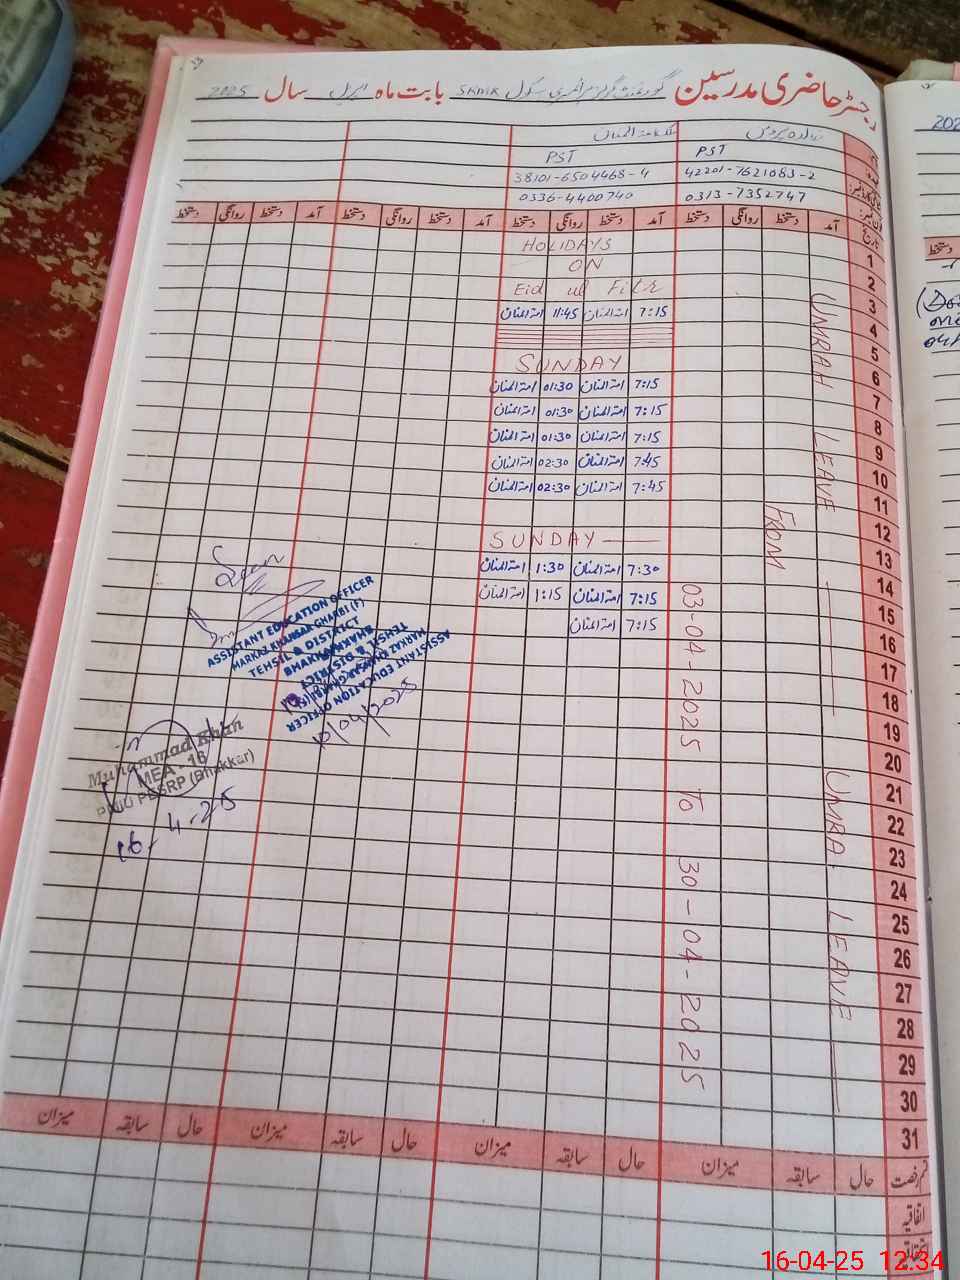 رجسٹر حاضری مدرسین گورنمنٹ گرلز پرائمری سکول SKMK بابت ماہ اپریل سال 2025
PST PST
42201-7621083-2 38101-6504468-4
0313-7352747 0336-4400740
تاریخ آمد دستخط روانگی دستخط آمد دستخط روانگی دستخط آمد دستخط روانگی دستخط آمد دستخط روانگی دستخط
1 HOLIDAYS
2 ON
3 Eid ul Fitr
4 7:15 امتہ المنان 11:45 امتہ المنان
5
6 SUNDAY
7 7:15 امتہ المنان 01:30 امتہ المنان
8 7:15 امتہ المنان 01:30 امتہ المنان
9 7:15 امتہ المنان 01:30 امتہ المنان
10 7:45 امتہ المنان 02:30 امتہ المنان
11 7:45 امتہ المنان 02:30 امتہ المنان
12
13 SUNDAY
14 7:30 امتہ المنان 1:30 امتہ المنان
15 7:15 امتہ المنان 1:15 امتہ المنان
16 7:15 امتہ المنان
17
18
19
20
21
22
23
24
25
26
27
28
29
30
31
UMRAH LEAVE
FROM
03-04-2025 To 30-04-2025
UMRA LEAVE
Seen
ASSISTANT EDUCATION OFFICER
MARKAZ KHANSAR GHARBI (F)
TEHSIL & DISTRICT
BHAKKAR
ASSISTANT EDUCATION OFFICER
MARKAZ KHANSAR GHARBI (F)
TEHSIL & DISTRICT
BHAKKAR
10/04/2025
Muhammad Khan
MEA - 16
PMIU PESRP (Bhakkar)
16-4-25
حال سابقہ میزان حال سابقہ میزان حال سابقہ میزان حال سابقہ میزان
اتفاقیہ
16-04-25 12:34